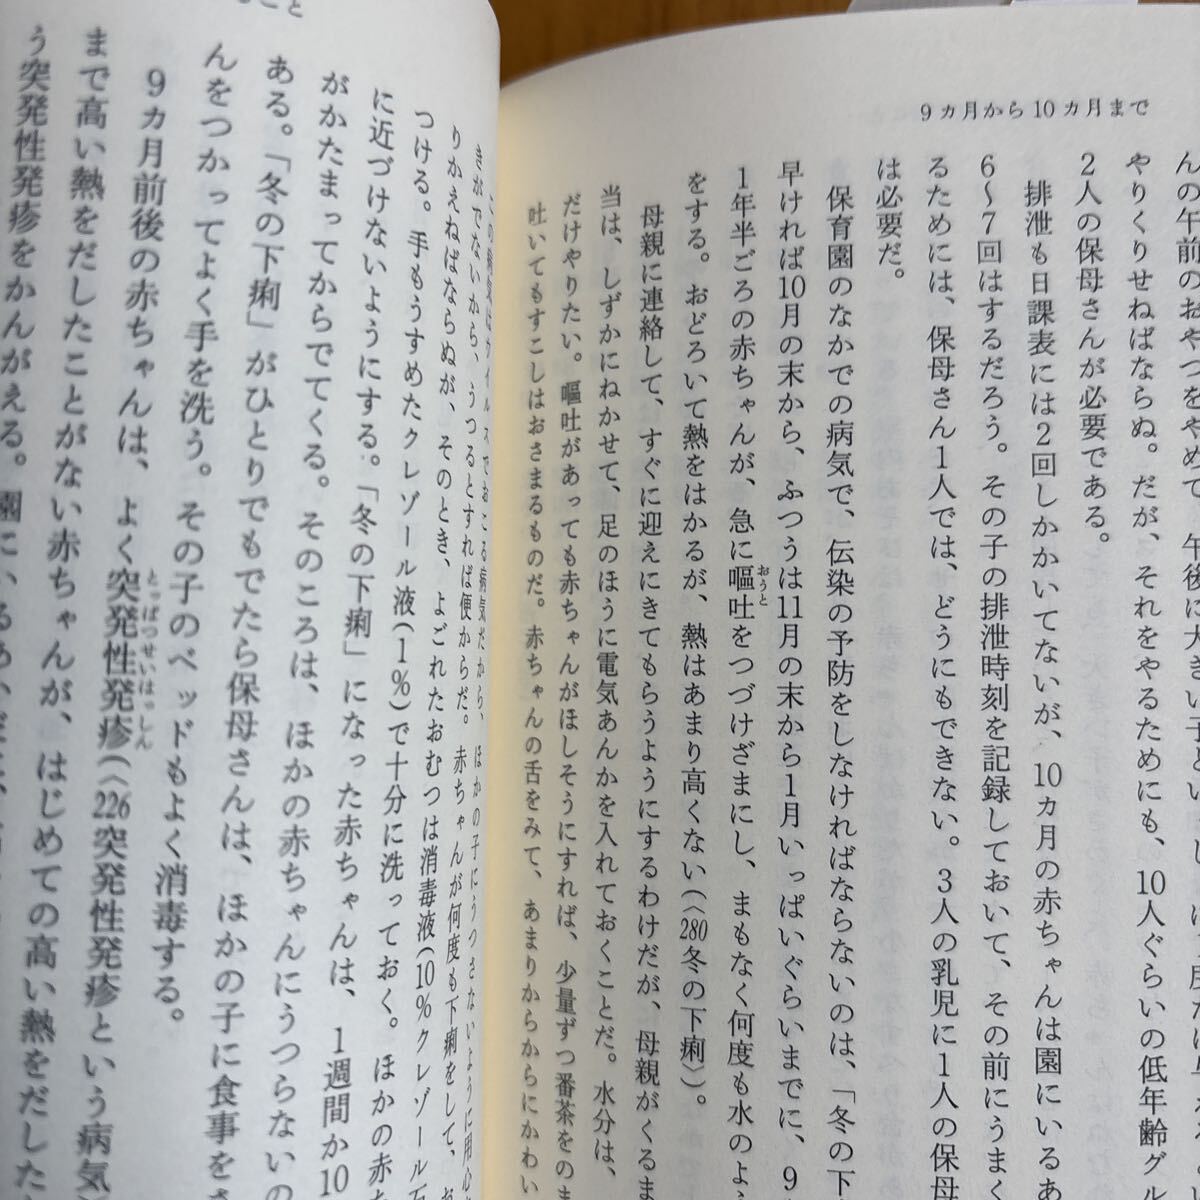 9カ月から10カ月まで
んの午前のおやつをやめて、午後に大きい子とい
やりくりせねばならぬ。だが、それをやるためにも、10人ぐらいの低年齢グル
2人の保母さんが必要である。
排泄も日課表には2回しかかいてないが、10カ月の赤ちゃんは園にいるあ
6〜7回はするだろう。その子の排泄時刻を記録しておいて、その前にうまく
るためには、保母さん1人では、どうにもできない。3人の乳児に1人の保母
は必要だ。
保育園のなかでの病気で、伝染の予防をしなければならないのは、「冬の下
早ければ10月の末から、ふつうは11月の末から1月いっぱいぐらいまでに、9
1年半ごろの赤ちゃんが、急に嘔吐をつづけざまにし、まもなく何度も水のよ
おうと
をする。おどろいて熱をはかるが、熱はあまり高くない(〈280冬の下痢〉)。
母親に連絡して、すぐに迎えにきてもらうようにするわけだが、母親がくるま
当は、しずかにねかせて、足のほうに電気あんかを入れておくことだ。水分は、
だけやりたい。嘔吐があっても赤ちゃんがほしそうにすれば、少量ずつ番茶をのま
吐いてもすこしはおさまるものだ。赤ちゃんの舌をみて、あまりからからにかわい
こと
この病気はウイルスでおこる病気だから、ほかの子にうつさないように用心
きがでないから、うつるとすれば便からだ。赤ちゃんが何度も下痢をして、お
りかえねばならぬが、そのとき、よごれたおむつは消毒液(10%クレゾール石
つける。手もうすめたクレゾール液(1%)で十分に洗っておく。ほかの赤
に近づけないようにする。「冬の下痢」になった赤ちゃんは、1週間か10
がかたまってからでてくる。そのころは、ほかの赤ちゃんにうつらないの
ある。「冬の下痢」がひとりでもでたら保母さんは、ほかの子に食事をさ
んをつかってよく手を洗う。その子のベッドもよく消毒する。
9カ月前後の赤ちゃんは、よく突発性発疹(〈226突発性発疹という病気
とっぱつせいはっしん
まで高い熱をだしたことがない赤ちゃんが、はじめての高い熱をだした
う突発性発疹をかんがえる。園にいるあいだに